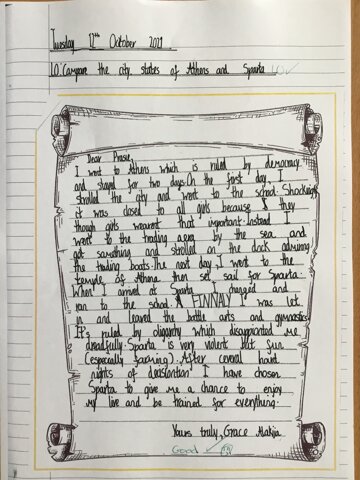 Tuesday 12th October 2021
LO: Compare the city states of Athens and Sparta
Dear Prasie,
I went to Athens which is ruled by democracy
and stayed for two days. On the first day, I
strolled the city and went to the school. Shockingly
it was closed to all girls because they
though girls wearent that important. Instead I
went to the trading area by the sea and
got somthing and strolled on the dock admiring
the trading boats. The next day, I went to the
temple of Athina then set sail for Sparta.
When I arrived at Sparta I changed and
ran to the school. FINNALY I was let
in and leared the battle arts and gymnastics.
It's ruled by oligarchy which disappointed me
dreadfully. Sparta is very violent but fun
(especially farming). After ceveral hard
nights of deasiontion I have chosen
Sparta to give me a chance to enjoy
my live and be trained for everything.
Yours truly, Grace Alakija
Good